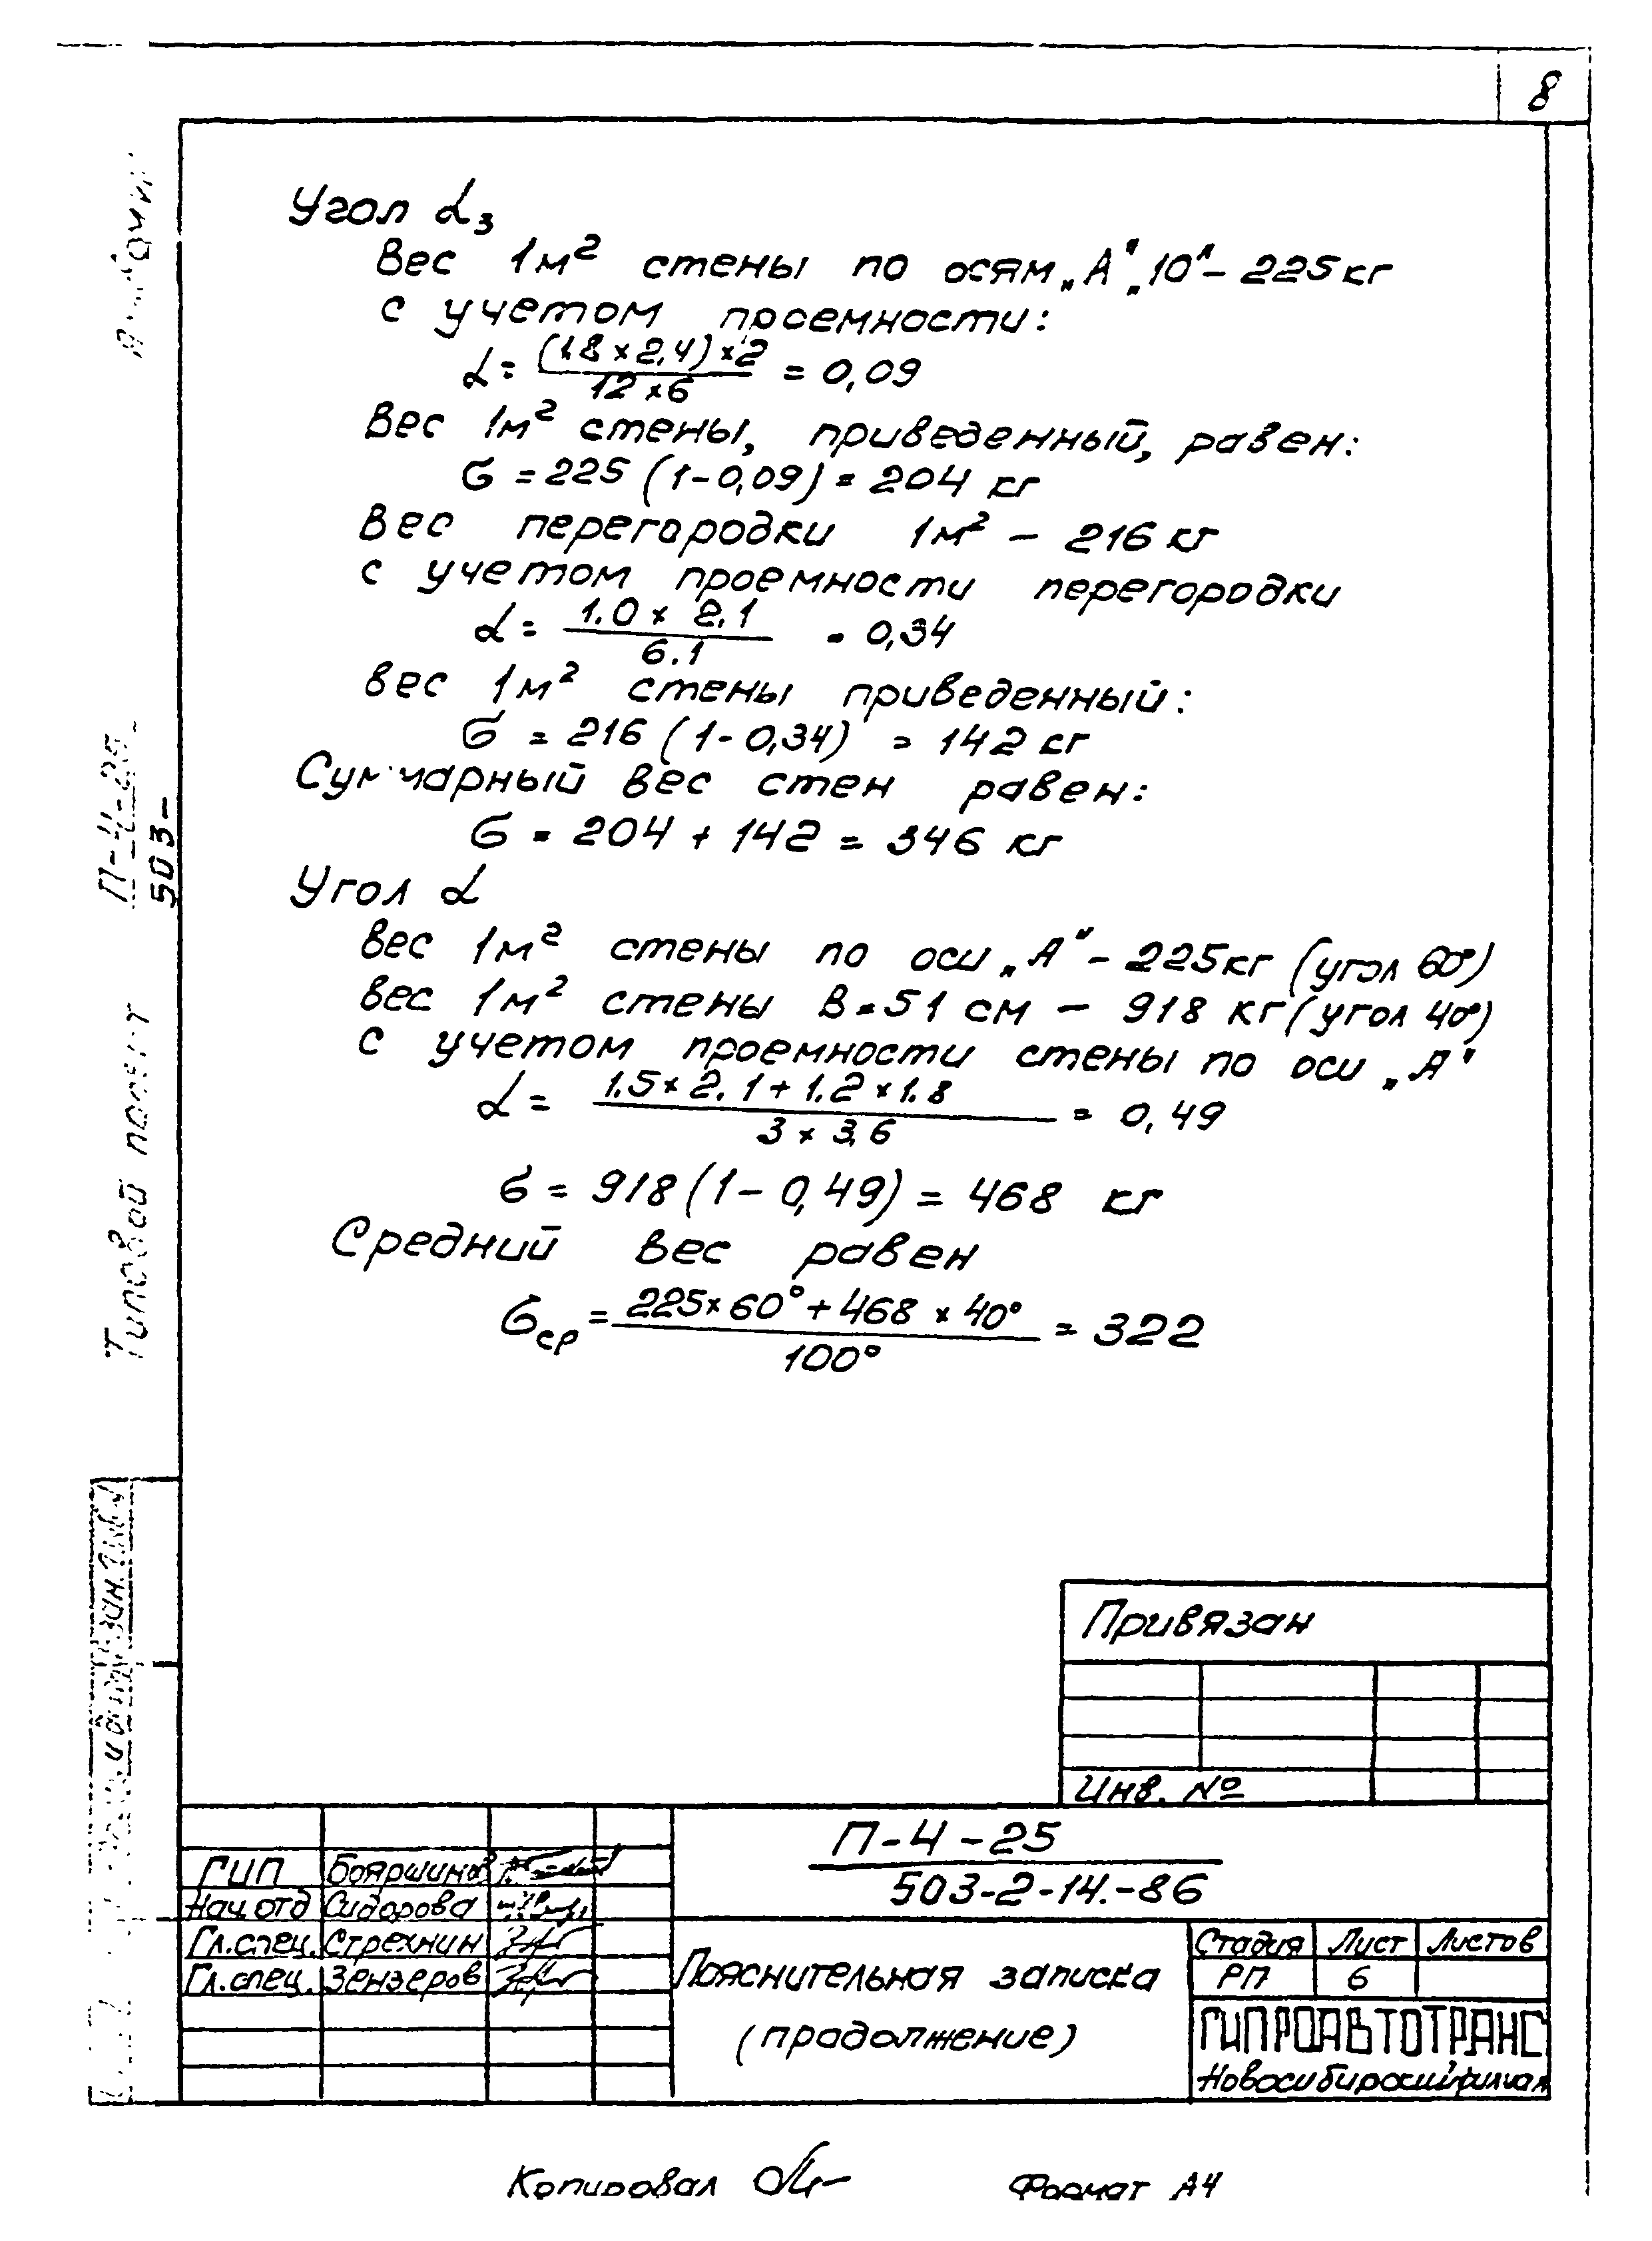 8
Угол α₃
Вес 1м² стены по осям „А", „10" – 225 кг
с учетом проемности:
α = (1.8 × 2,4) × 2 / 12 × 6 = 0,09
Вес 1м² стены, приведенный, равен:
G = 225 (1 – 0,09) = 204 кг
Вес перегородки 1м² – 216 кг
с учетом проемности перегородки
α = 1.0 × 2.1 / 6.1 = 0,34
вес 1м² стены приведенный:
G = 216 (1 – 0,34) = 142 кг
Суммарный вес стен равен:
G = 204 + 142 = 346 кг
Угол α
вес 1м² стены по оси „А" – 225кг (угол 60°)
вес 1м² стены В = 51 см – 918 кг (угол 40°)
с учетом проемности стены по оси „А"
α = 1.5 × 2.1 + 1.2 × 1.8 / 3 × 3,6 = 0,49
G = 918 (1 – 0,49) = 468 кг
Средний вес равен
Gср = 225 × 60° + 468 × 40° / 100° = 322
Типовой проект
П-4-25
503-
Привязан
Инв. №
П-4-25
503-2-14.-86
ГИП Бояршинов
Нач. отд Сидорова
Гл. спец. Стрехнин
Гл. спец. Зензеров
Пояснительная записка
(продолжение)
Стадия Лист Листов
РП 6
ГИПРОАВТОТРАНС
Новосибирский филиал
Копировал
Формат А4